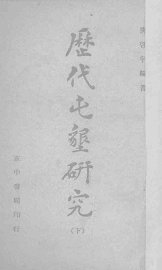 唐啓宇編著
歷代屯墾研究
(下)
正中書局印行